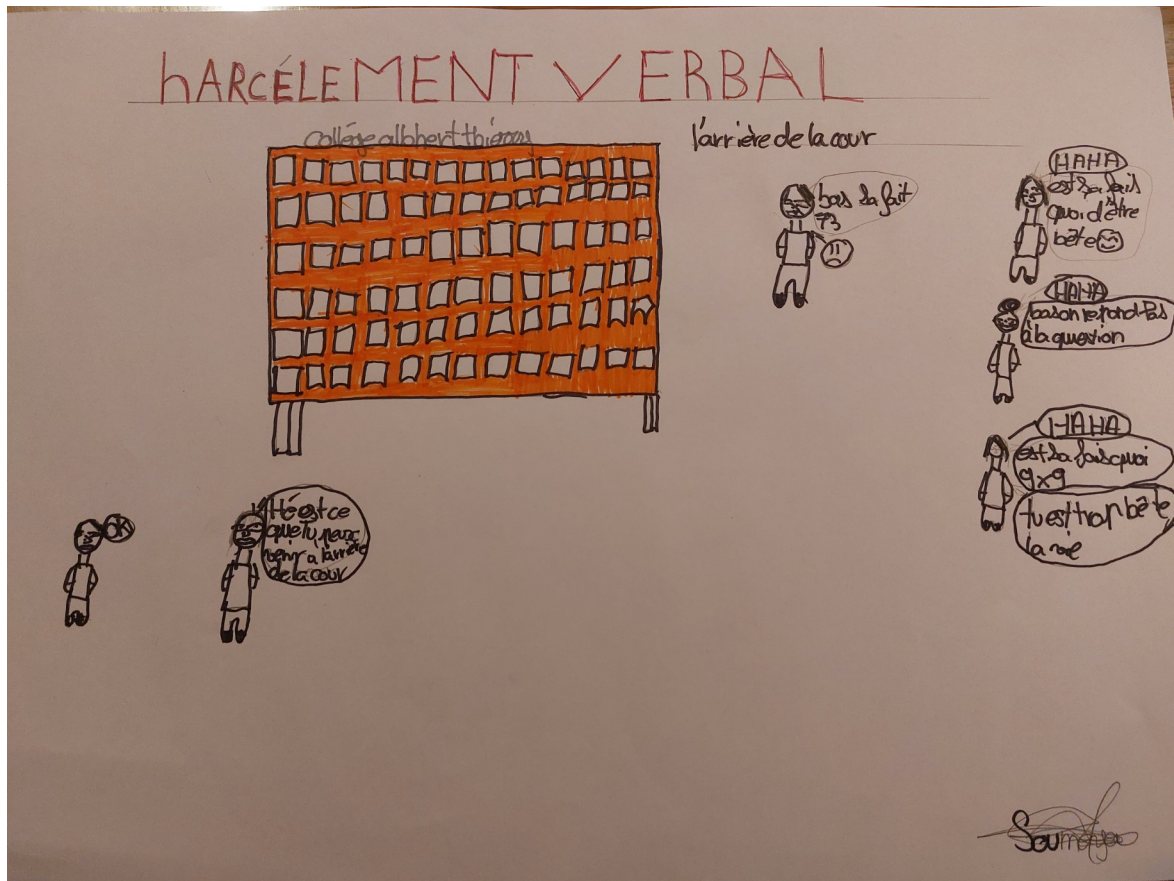 hARCÉLEMENT VERBAL
collége albhert thierry
l'arrière de la cour
bas sa fait
73
HAHA
est sa fais
quoi d'être
bête
HAHA
bas on repond Pas
à la question
HAHA
est sa fais quoi
9x9
tu est trop bête
la
OK
Hé est ce
que Tu peux
venir a larrière
de la cour